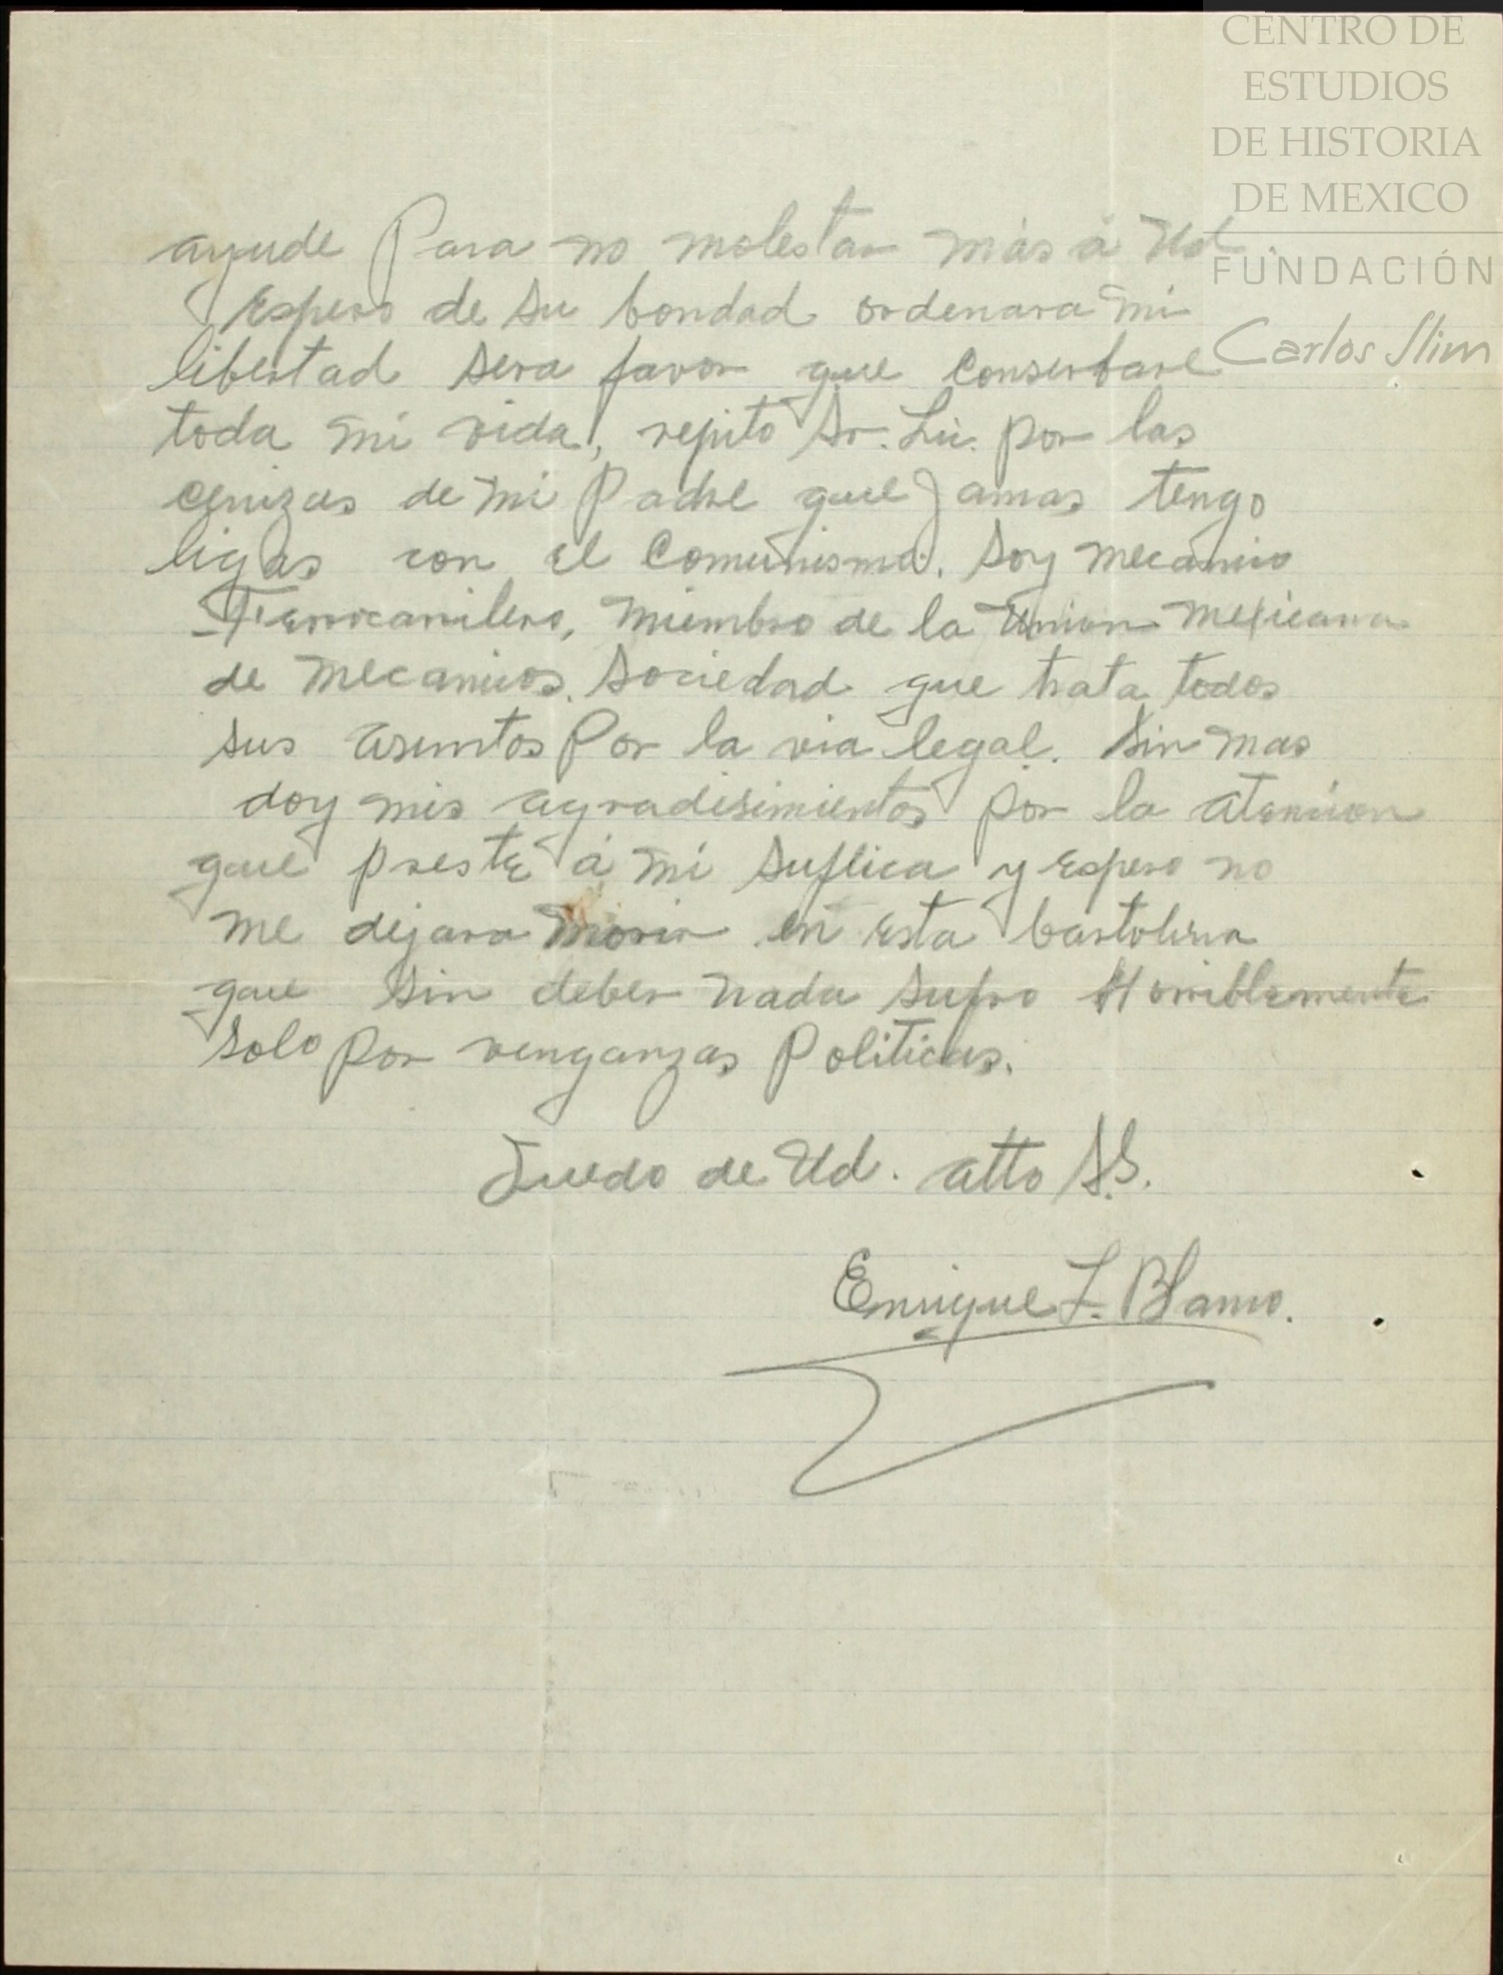 CENTRO DE
ESTUDIOS
DE HISTORIA
DE MEXICO
FUNDACIÓN
Carlos Slim
ayude Para no molestar más á Ud.
Espero de su bondad ordenara mi
libertad sera favor que conserbare
toda mi vida, repito Sr. Lic. por las
cenizas de mi Padre que Jamas tengo
ligas con el Comunismo. Soy mecanico
Ferrocarrilero, miembro de la Union Mexicana
de Mecanicos. Sociedad que trata todos
sus asuntos Por la via legal. Sin mas
doy mis agradisimientos por la atencion
que preste á mi suplica y espero no
me dejara morir en esta bartolina
que sin deber nada sufro Horriblemente
solo por venganzas Politicas.
Quedo de Ud. atto S.S.
Enrique F. Blanco.